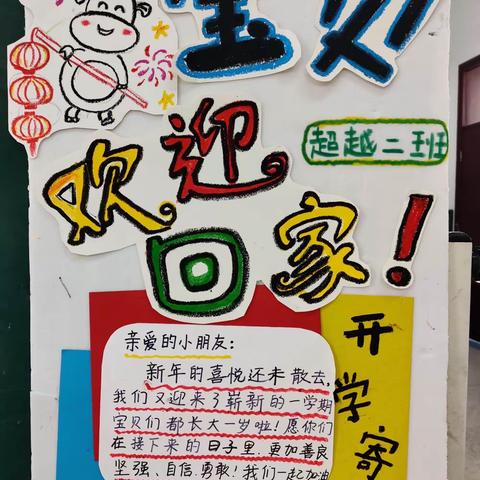 宝贝
欢迎
回家！
超越二班
亲爱的小朋友：
新年的喜悦还未散去，
我们又迎来了崭新的一学期
宝贝们都长大一岁啦！愿你们
在接下来的日子里，更加善良
坚强、自信、勇敢！我们一起加油
开学寄